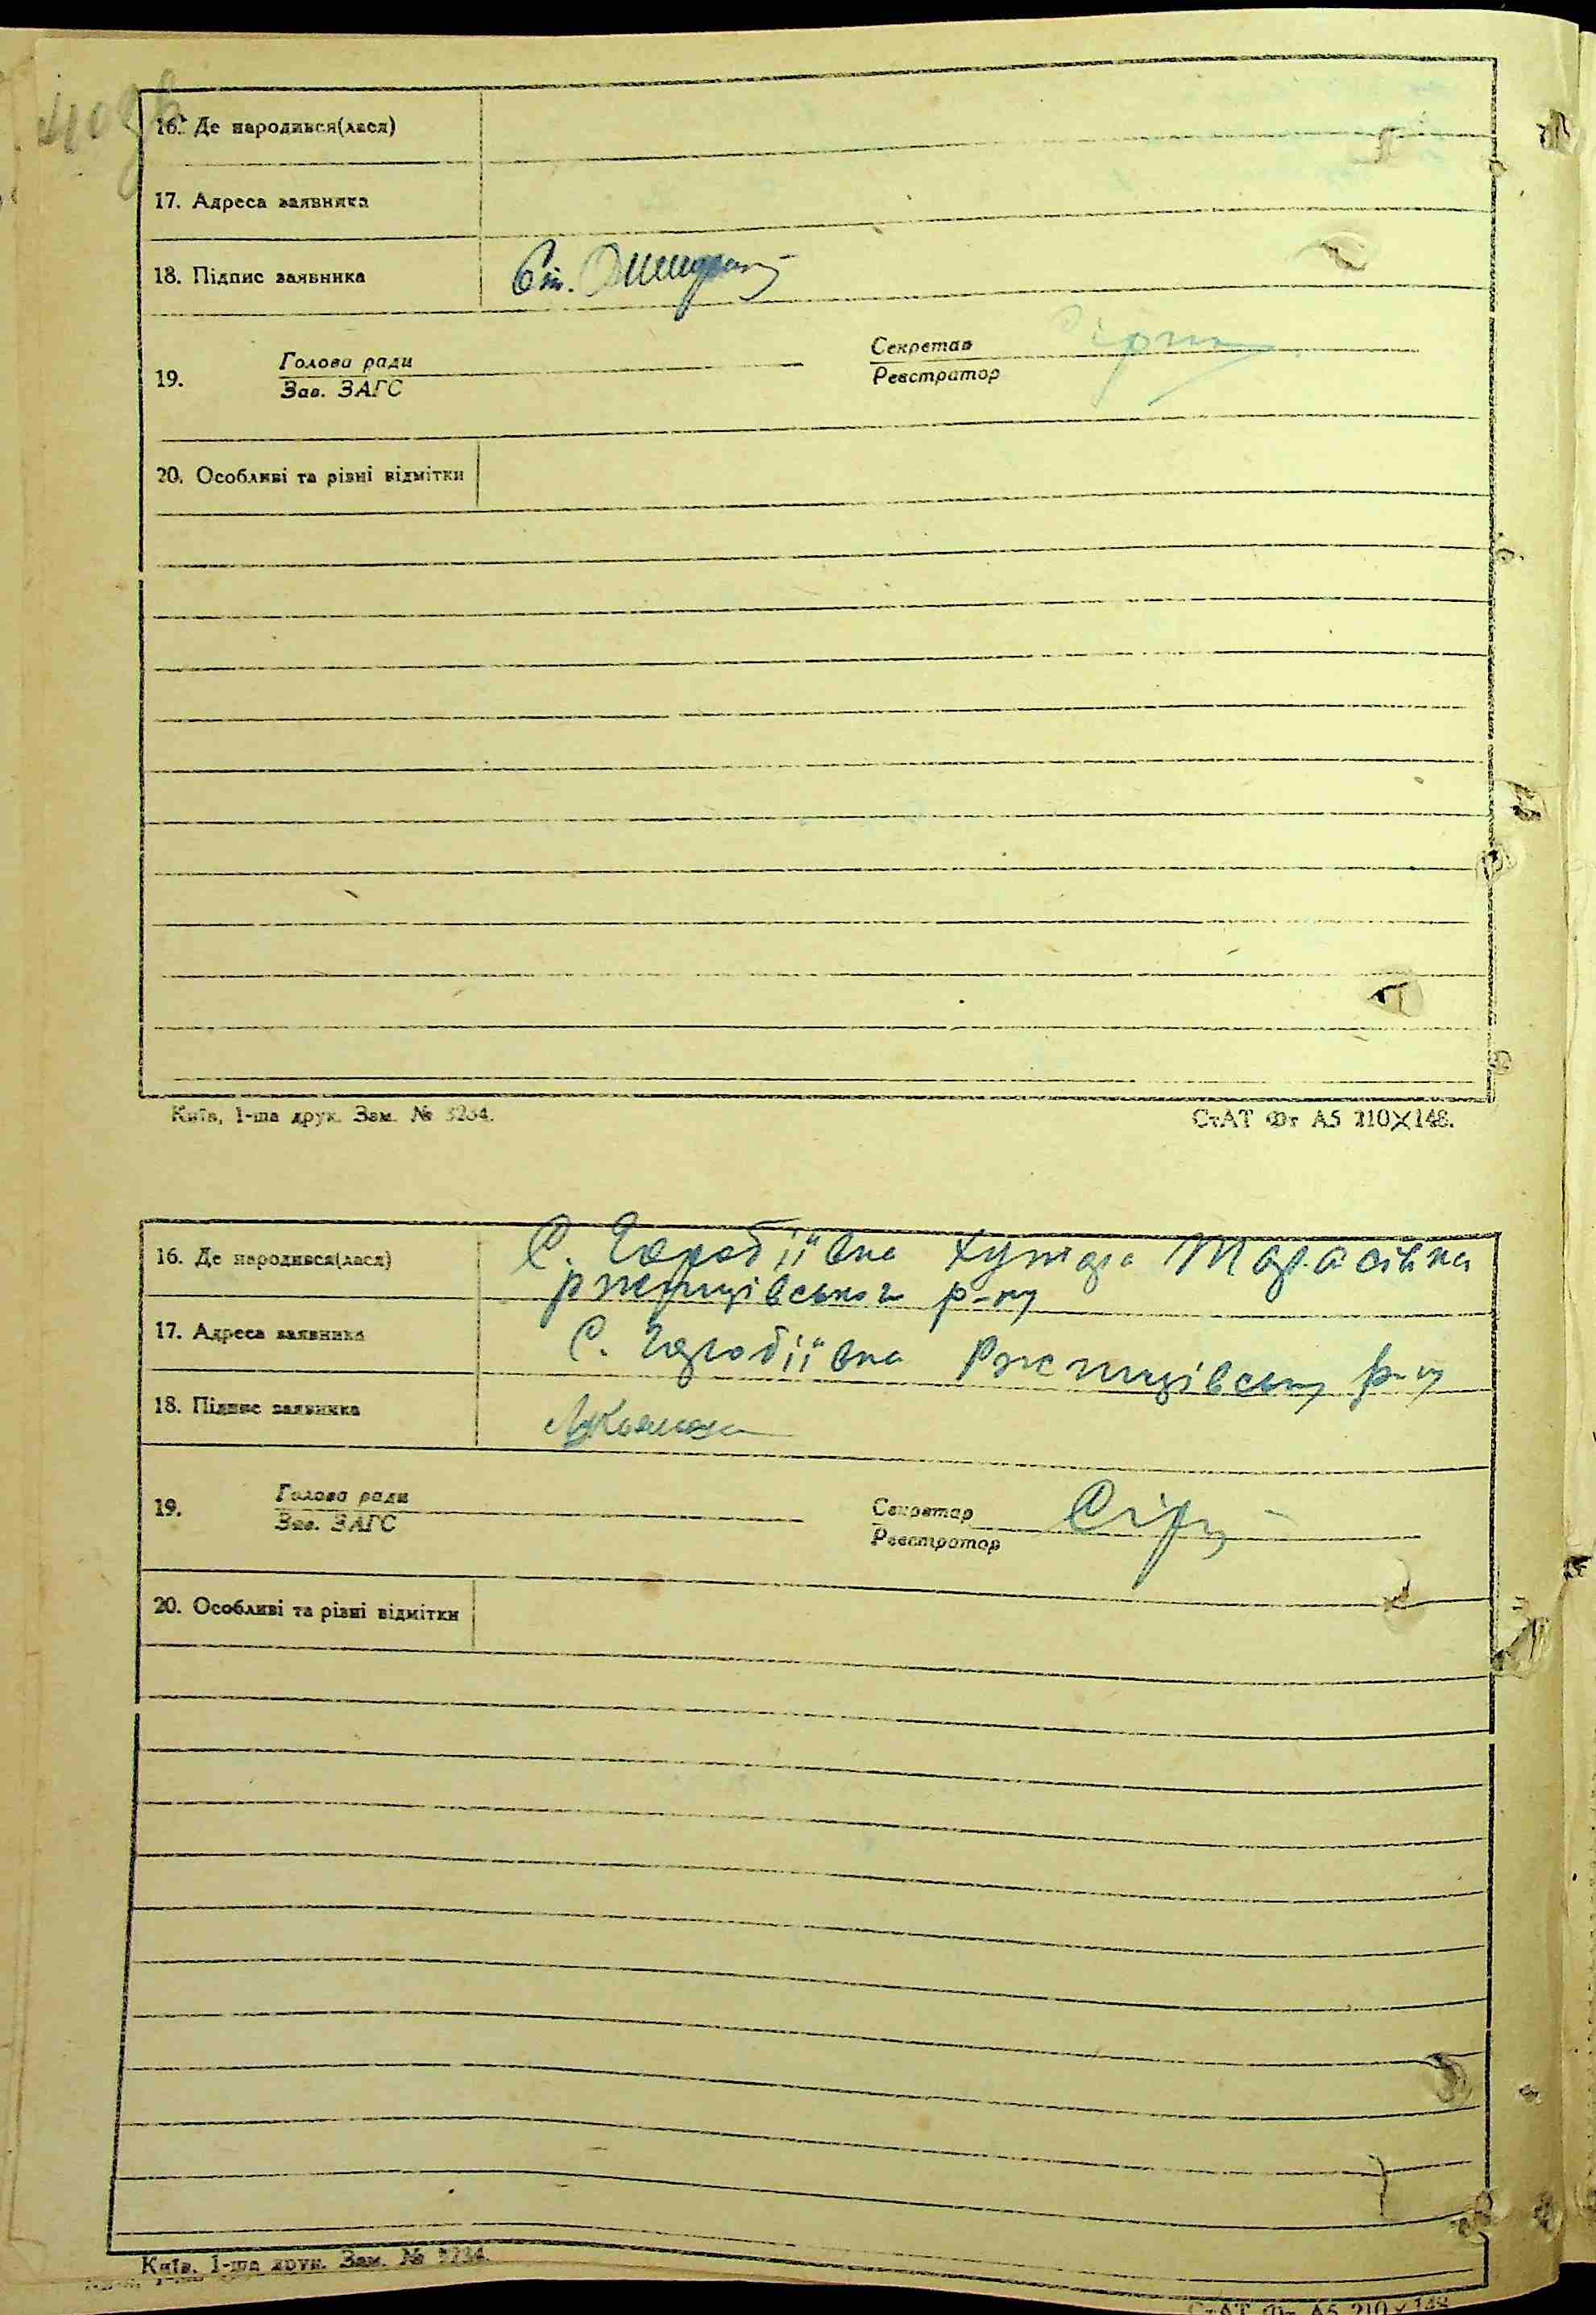 16. Де народився(лася)
17. Адреса заявника
18. Підпис заявника
19. Голова ради Секретар
Зав. ЗАГС Реєстратор
20. Особливі та різні відмітки
Київ, 1-ша друк. Зам. № 3234. СтАТ Фт А5 210×148.
16. Де народився(лася) С. Горобіївка Хутора Тарасівка
Ржищівського р-ну
17. Адреса заявника С. Горобіївка Ржищівську р-ну
18. Підпис заявника
19. Голова ради Секретар
Зав. ЗАГС Реєстратор
20. Особливі та різні відмітки
Київ, 1-ша друк. Зам. № 3234.
СтАТ Фт А5 210×148